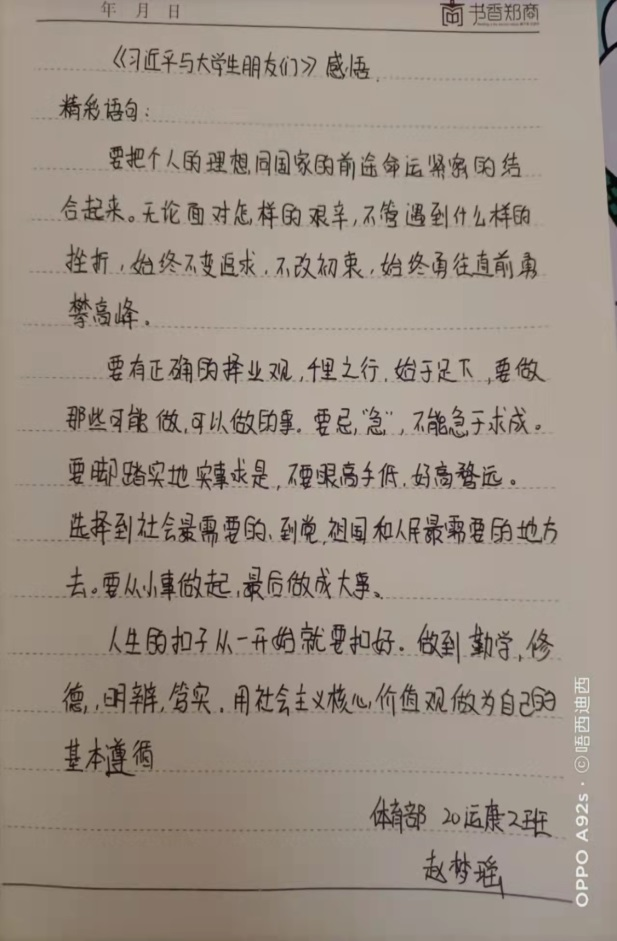 年 月 日
书香郑商
《习近平与大学生朋友们》感悟.
精彩语句:
要把个人的理想,同国家的前途命运紧密的结
合起来。无论面对怎样的艰辛,不管遇到什么样的
挫折,始终不变追求,不改初衷,始终勇往直前勇
攀高峰。
要有正确的择业观,千里之行,始于足下,要做
那些可能做,可以做的事。要忌“急”,不能急于求成。
要脚踏实地实事求是,不要眼高手低,好高骛远。
选择到社会最需要的、到党,祖国和人民最需要的地方
去。要从小事做起,最后做成大事。
人生的扣子从一开始就要扣好。做到勤学,修
德,,明辨,笃实,用社会主义核心价值观做为自己的
基本遵循
体育部 20运康2班
赵梦瑶
OPPO A92s · ©唔西迪西